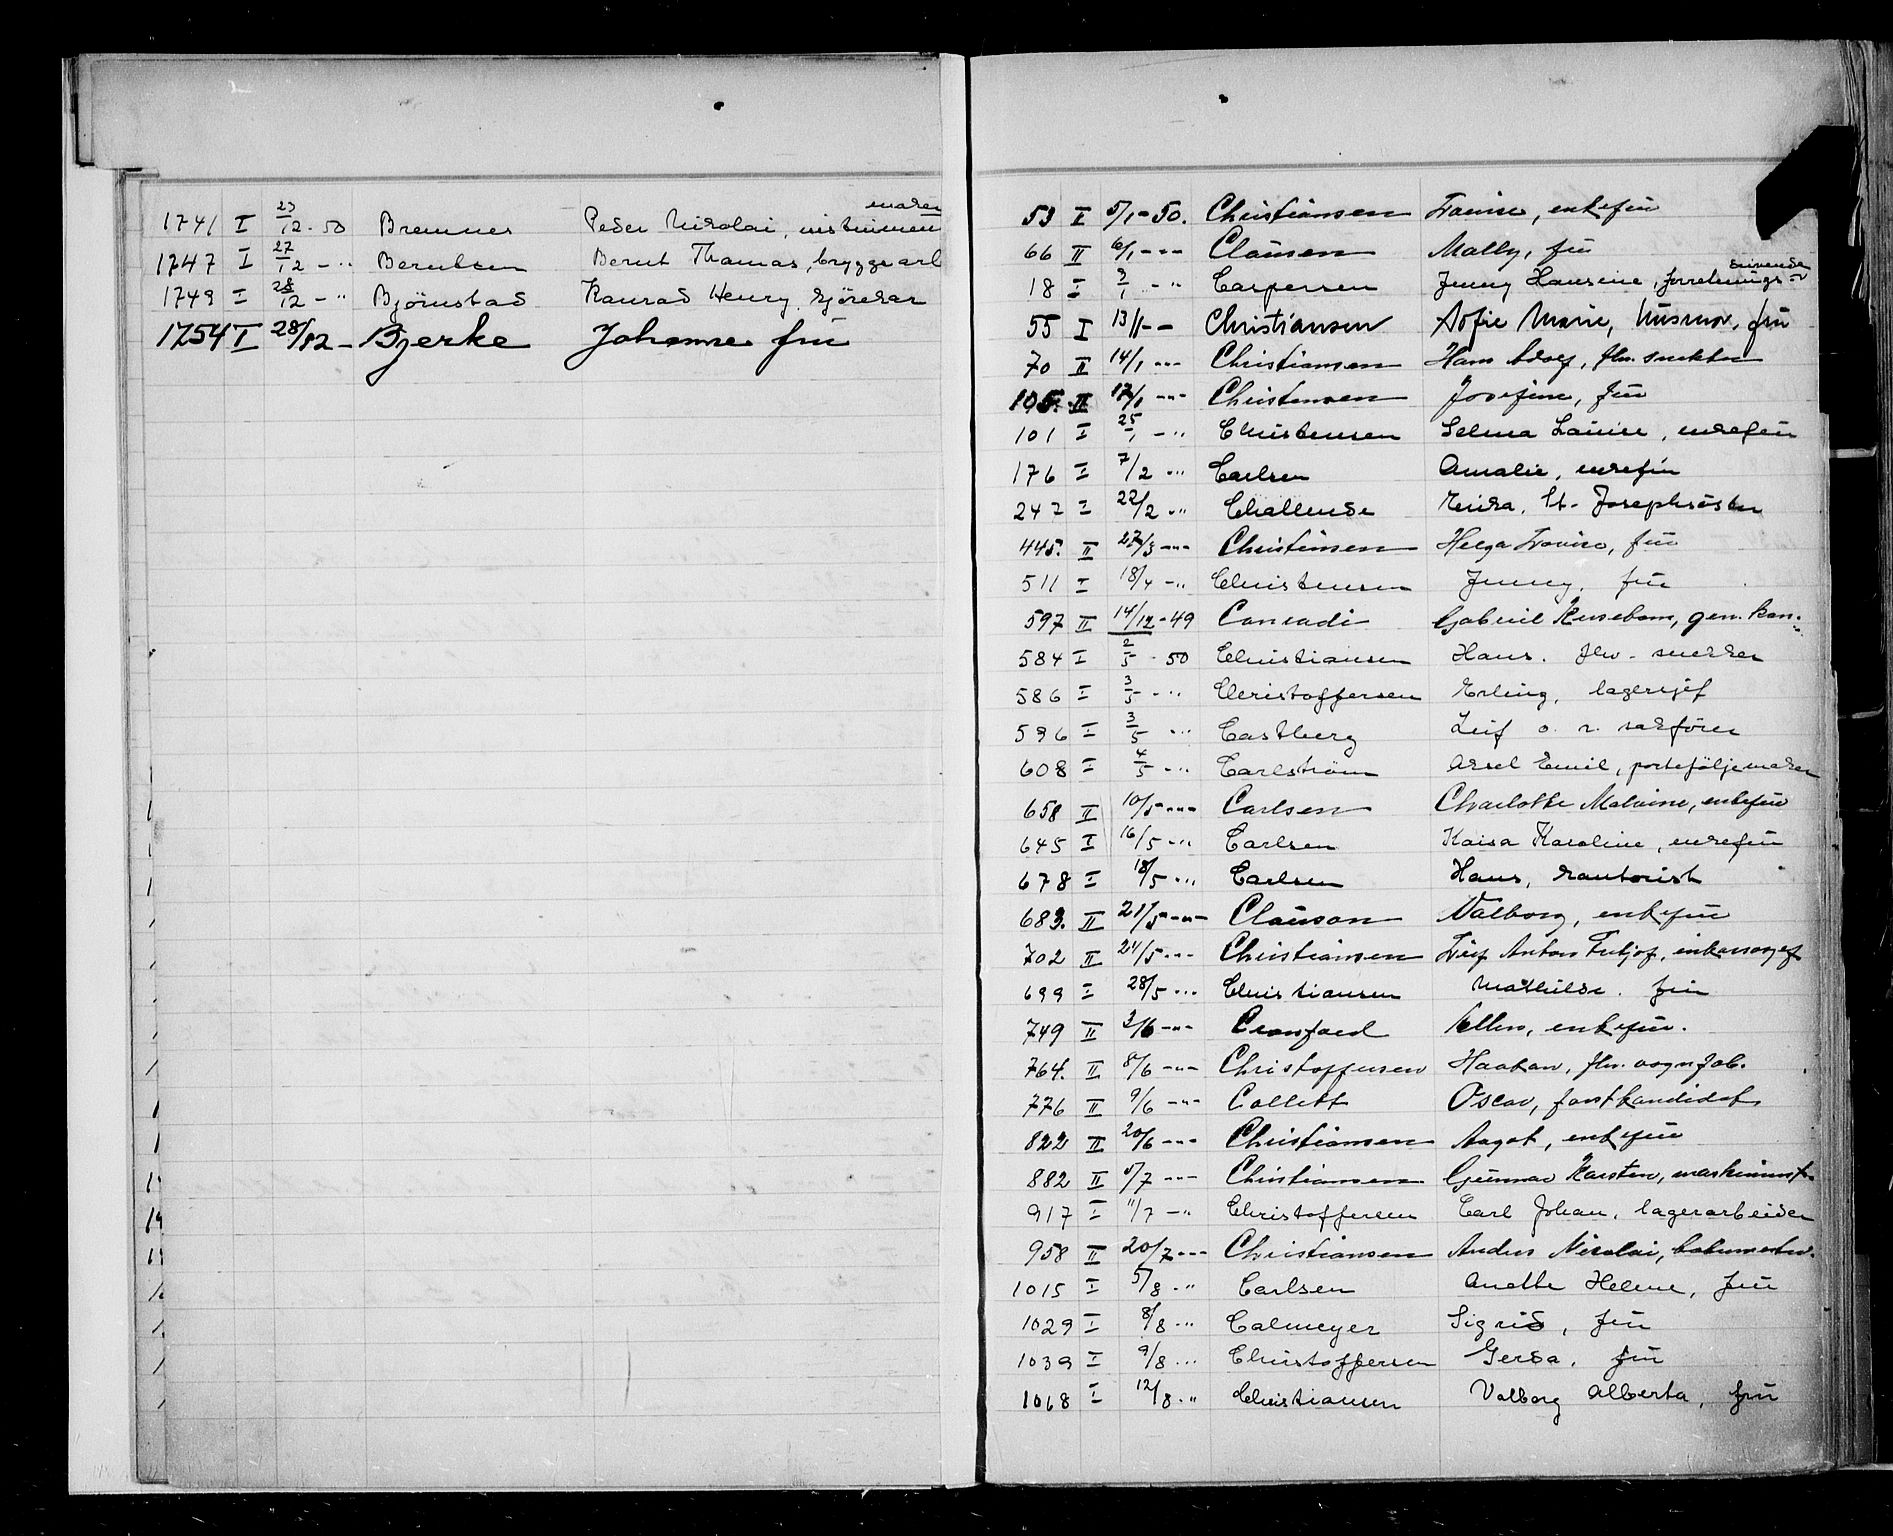 maker
1741 I 23/12-50 Bremnes Peder Nikolai, instrumen
1747 I 27/12 - " Berntsen Bernt Thomas, bryggearb
1749 I 28/12 - " Björnstad Konrad Henry, kjörekar
1754 I 28/12 - Bjerke Johanne fru
53 I 5/1-50. Christiansen Lovise, enkefru
66 II 6/1 - " - Clausen Mally, fru
drivende
18 I 9/1 - " Caspersen Jenny Hansine, forretnings-
55 I 13/1 - - Christiansen Sofie Marie, husmor, fru
70 II 14/1 - " - Christiansen Hans Adolf, fhv. snekker
105. II 17/1 - " - Christensen Josefine, fru
101 I 25/1 - " Christensen Selma Lauise, enkefru
176 I 7/2 - " Carlsen Amalie, enkefru
247 I 22/2 - " Challende Erika, St. Josephsöster
445. II 27/3 - " - Christensen Helga Lovise, fru
511 I 18/4 - " Christensen Jenny, fru
597 II 14/12-49 Conradi Gabriel, gen. kon.
584 I 2/5 - 50 Christiansen Hans. fhv. snekker
586 I 3/5 - " Christoffersen Erling, lagersjef
596 I 3/5 - " Castberg Leif o. r. sakfører
608 I 4/5 - " Carlström Aksel Emil, porteföljemaker
658 II 10/5 - " - Carlsen Charlotte Malvine, enkefru
645 I 16/5 - " Carlsen Kaisa Karoline, enkefru
678 I 18/5 - " Carlsen Hans, kontorist
683. II 21/5 - " - Clauson Valborg, enkefru
702 II 24/5 - " - Christiansen Leif Anton Fritjof,
699 I 28/5 - " Christiansen Mathilde. fru
749 II 3/6 - " - Cranfoed Ellen, enkefru.
764. II 8/6 - " - Christoffersen Haakon, fhv. vognfab.
776 II 9/6 - " - Collett Oscar, forstkandidat
822 II 20/6 - " - Christiansen Aagot, enkefru
882 II 5/7 - " - Christiansen Gunnar Karsten, maskininsp.
917 I 11/7 - " Christoffersen Carl Johan, lagerarbeider
958 II 20/7 - " - Christiansen Anders Nikolai,
1015 I 5/8 - " Carlsen Anette Helene, fru
1029 I 8/8 - " Calmeyer Sigrid, fru
1039 I 9/8 - " Christoffersen Gerda, fru
1068 I 12/8 - " Christiansen Valborg Alberta, fru